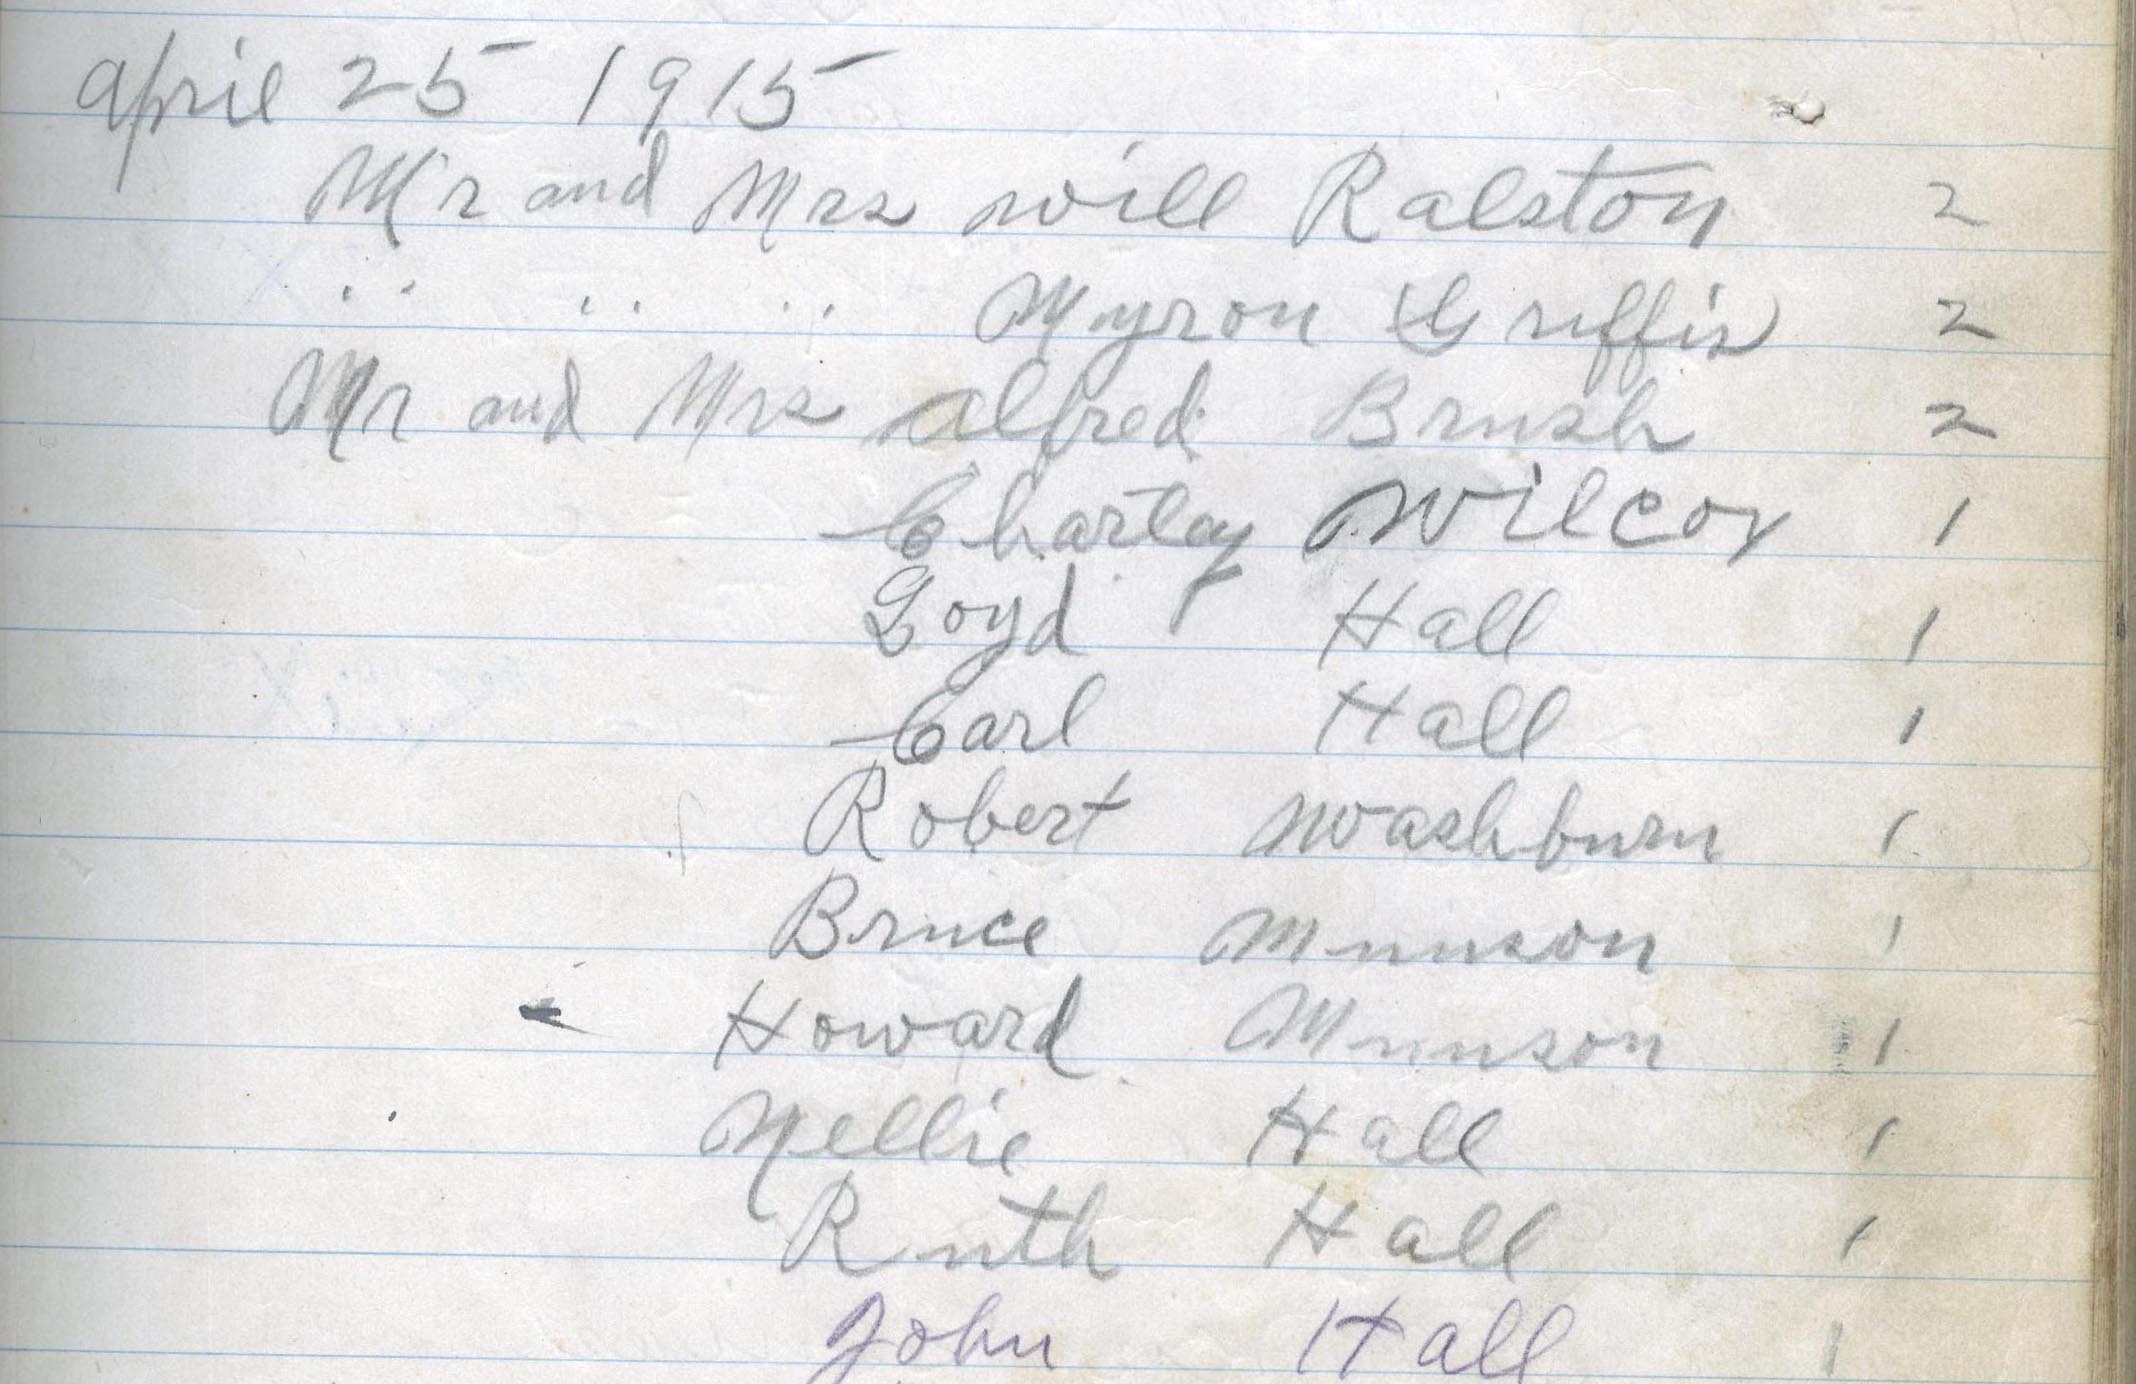 april 25 1915
Mr and Mrs will Ralston 2
" " " Myron Griffis 2
Mr and Mrs Alfred Brush 2
Charley Wilcox 1
Loyd Hall 1
Carl Hall 1
Robert Washburn 1
Bruce Munson 1
Howard Munson 1
Nellie Hall 1
Ruth Hall 1
John Hall 1